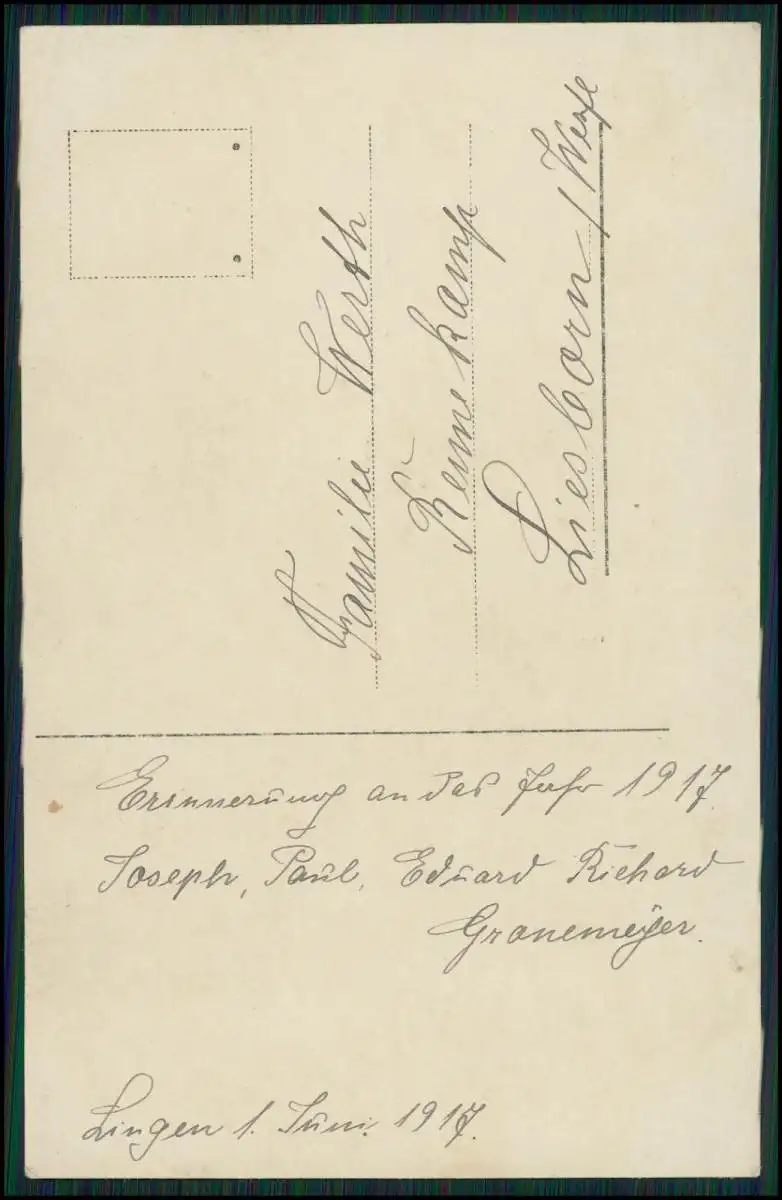 Familie Werth
Rennekamp
Liesborn / Westf
Erinnerung an das Jahr 1917.
Joseph, Paul, Eduard Richard
Gronemeÿer.
Lingen 1. Juni. 1917.